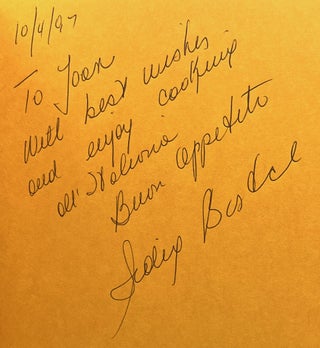 10/4/97
To Joan
With best wishes
and enjoy cooking
all' Italiana
Buon Appetito